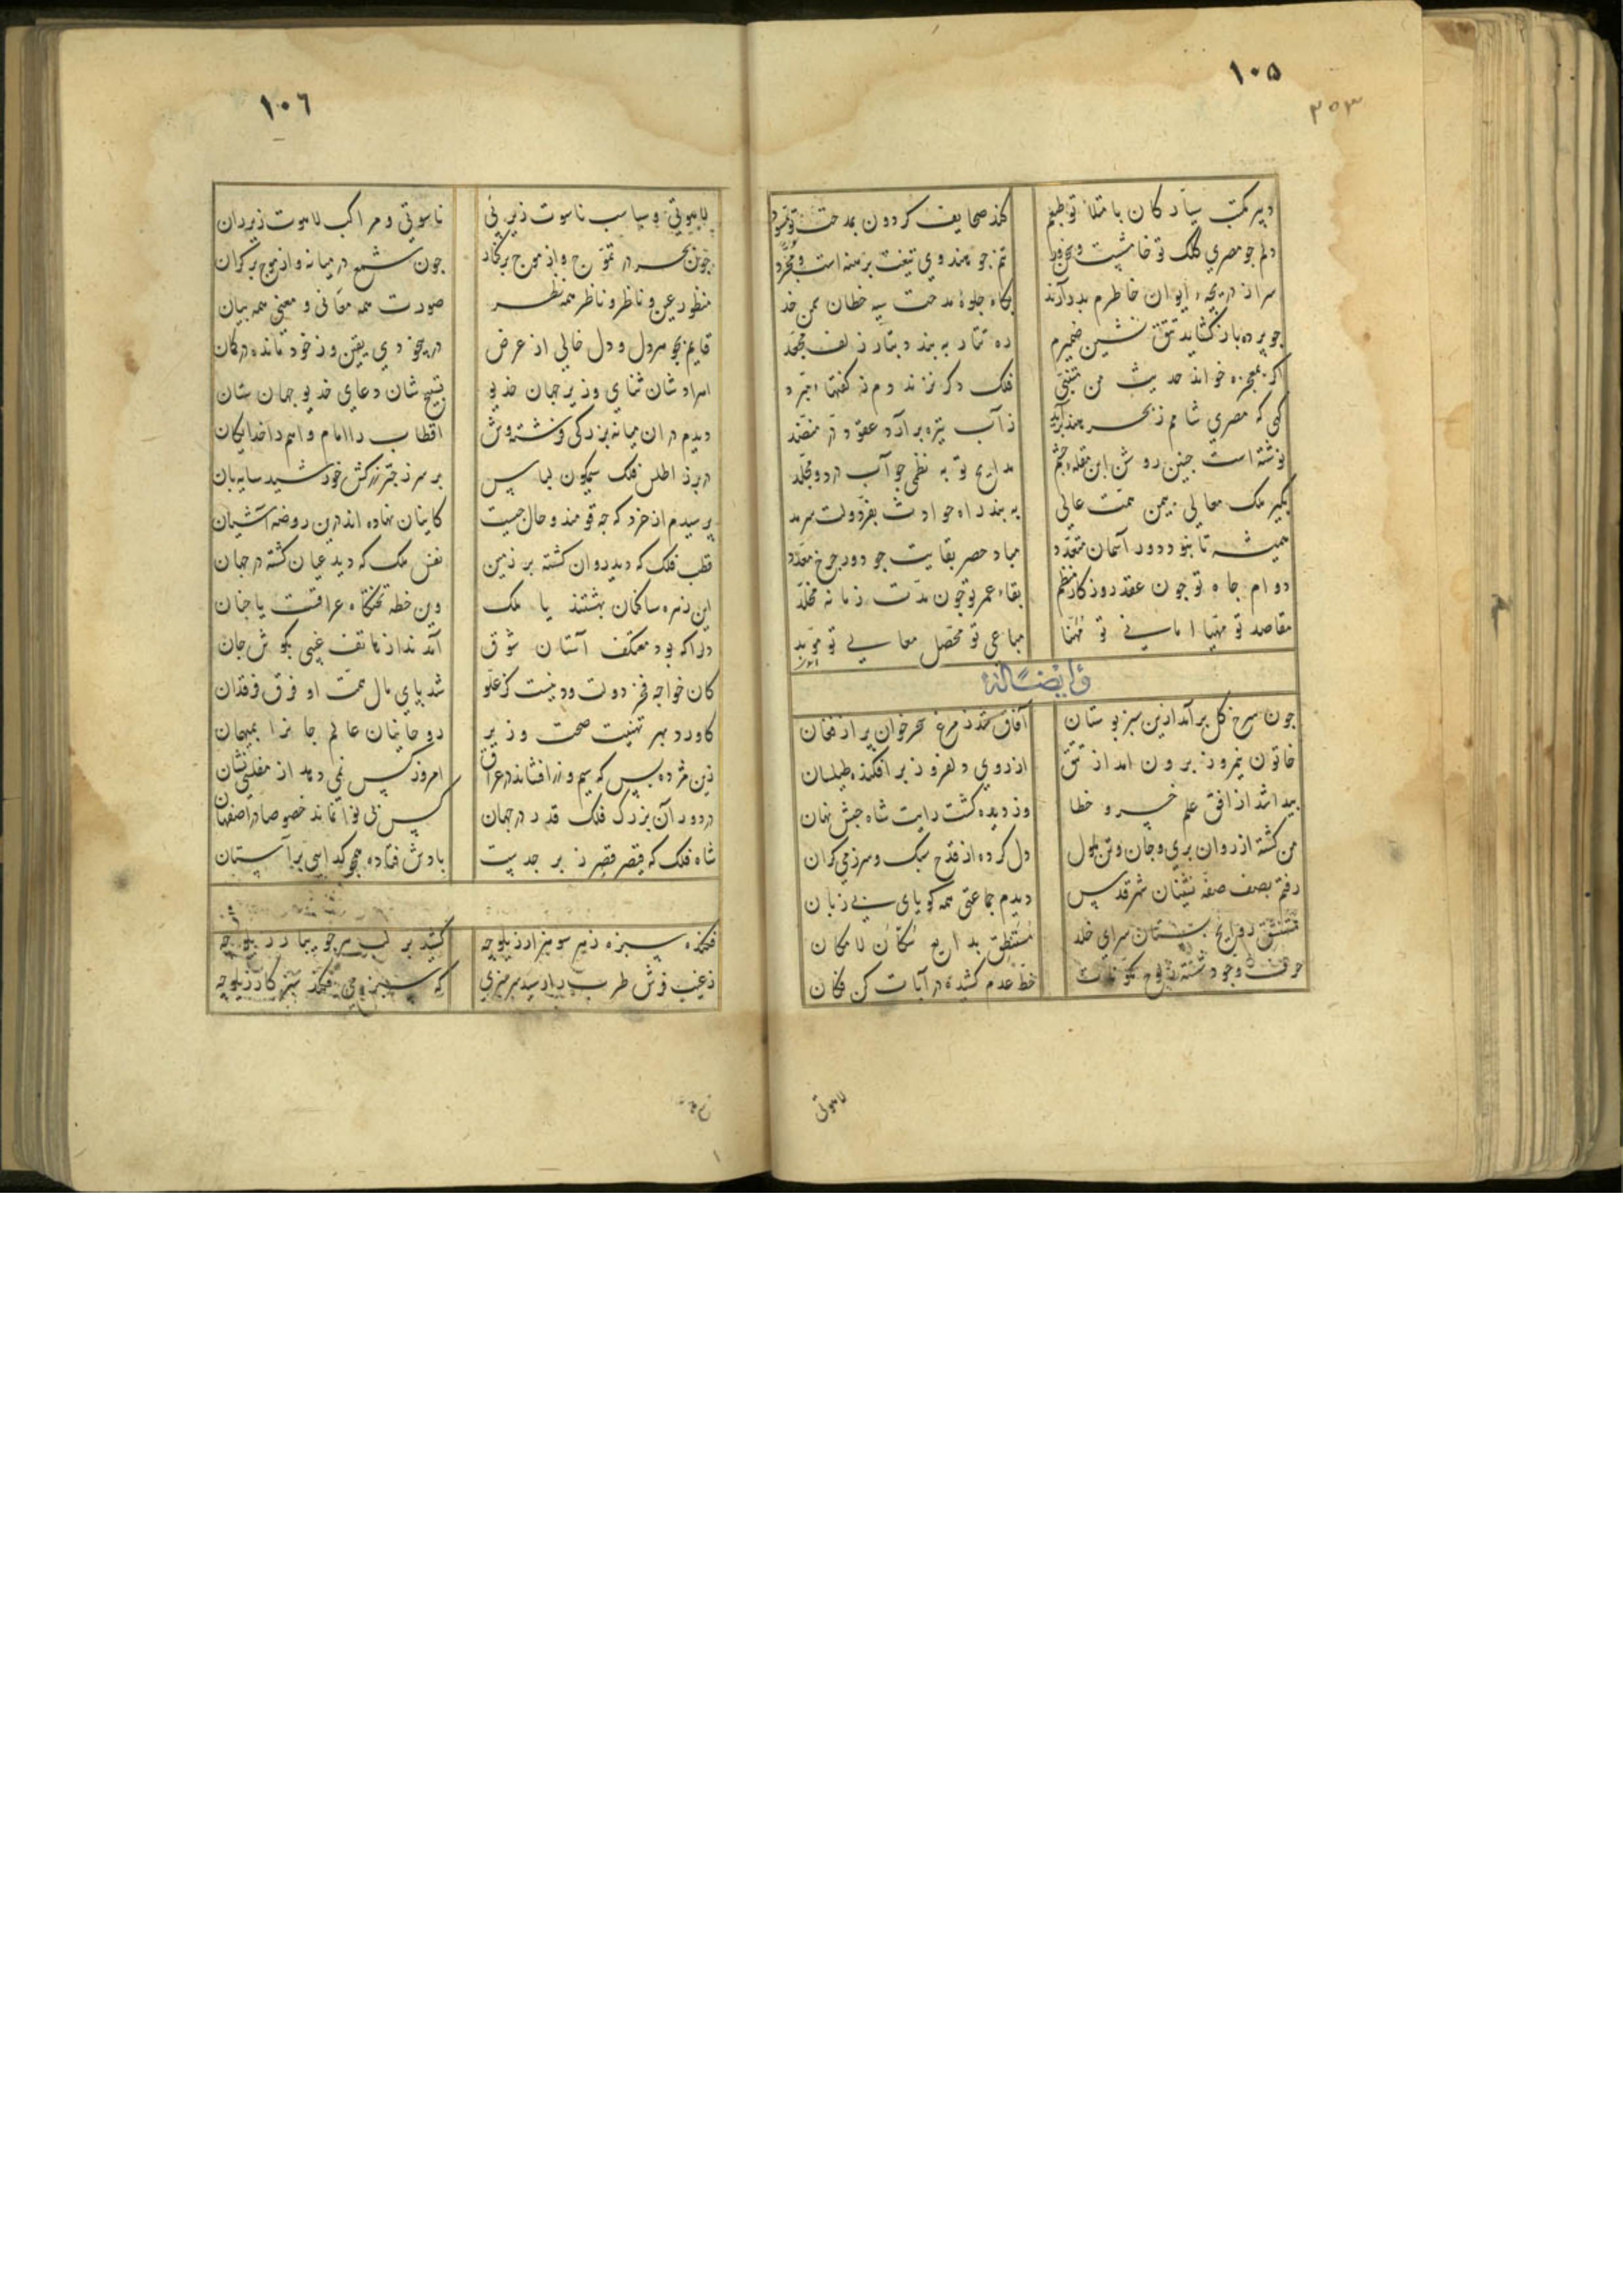 ۱۰۵
۳۵۳
دبیر مکتب سیارکان با متلاٰ تو طبعم کند صحایف کردون بمدحت تو
دلم جو مصری کلک تو خامشیت و تنم جو هندوی تیغت برهنه است و مجرد
سر از دریجه ایوان خاطرم بدر آرند بکاه جلوهٔ مدحت سیه خطان سمن خد
جو پرده باز کشاید تتق نشین ضمیرم ره تتار به بندد بتار زلف مجعد
اکر بمعجزه خواند حدیث من متنبی فلک دکر نزند دم ز کفتهاء مبرد
کهی که مصری شامم ز بحر هند برآید ز آب تیره برآرد عقود در منضد
نوشته است جنین روشن ابن مقله جشم مدایح تو به نظمی جو آب در دو مجلد
بکیر ملک معالی بیمن همت عالی به بند راه حوادث بفر دولت سرمد
همیشه تا بنود دور آسمان متعدد مباد حصر بقایت جو دور جرخ معدد
دوام جاه تو جون عقد روزکار منظم بقاء عمر تو جون مدت زمانه مخلد
مقاصد تو مهیا امانی تو مهنا مباعی تو محصل معالی تو مؤید
وایضاً له
جون سرخ کل برآمد ازین سبز بوستان آفاق شد ز مرغ سحرخوان پر از فغان
خاتون نیمروز برون امد از تتق از روی دلفروز برافکنده طیلسان
پیدا شد از افق علم خسرو خطا وز دیده کشت رایت شاه حبش نهان
من کشته از روان بری و جان و تن ملول دل کرده از قدح سبک و سر ز می کران
رفتم بصف صفه نشینان شهر قدس دیدم جماعتی همه کویای بی زبان
مستنشق روایح بستان سرای خلد مستنطق بدایع سکان لامکان
حرف وجود شسته ز لوح خط عدم کشیده در آیات کن فکان
لاهوتی
۱۰٦
لاهوتی و سباسب ناسوت زیر پی ناسوتی و مراکب لاهوت زیر ران
جون بحر در تموج و از موج برکنار جون شمع در میانه و از موج بر کران
منظور عین و ناظر و ناظر همه نظر صورت همه معانی و معنی همه بیان
قایم بجوهر دل و دل خالی از عرض در بیخودی یقین و ز خود مانده در کمان
اوراد شان ثنای وزیر جهان خدیو تسبیح شان دعای خدیو جهان ستان
دیدم در ان میانه بزرکی فرشته وش اقطاب را امام و امم را خدایکان
در بر ز اطلس فلک سیمکون لباس بر سر ز جتر زرکش خورشید سایه بان
پرسیدم از خرد که جه قومند و حال جیست کاینان نهاده اند درین روضه آشیان
قطب فلک که دید روان کشته بر زمین نفس ملک که دید عیان کشته در جهان
این زمره ساکنان بهشتند یا ملک وین خطه تختکاه عراقست یا جنان
دلرا که بود معتکف آستان شوق آمد ندا ز هاتف غیبی بکوش جان
کان خواجه فخر دولت و دینست کز علو شد پای مال همت او فرق فرقدان
کاورد بهر تهنیت صحت وزیر روحانیان عالم جانرا بمیهمان
زین مژده بس که سیم و زر افشاند در عراق امروز کس نمی دهد از مفلسی نشان
در دور آن بزرک فلک قدر در جهان کس بی نوا نماند خصوصا در اصفهان
شاه فلک که قیصر قصر زبرجدیست بادش فتاده همجو کدایی بر آستان
فکنده سبزه ز هر سو هزار زیلوجه کشید بر لب هر جویبار زیلوجه
ز غیب فرش طرب یا رسید هر منزی که سبزه می فکند سبز کار زیلوجه